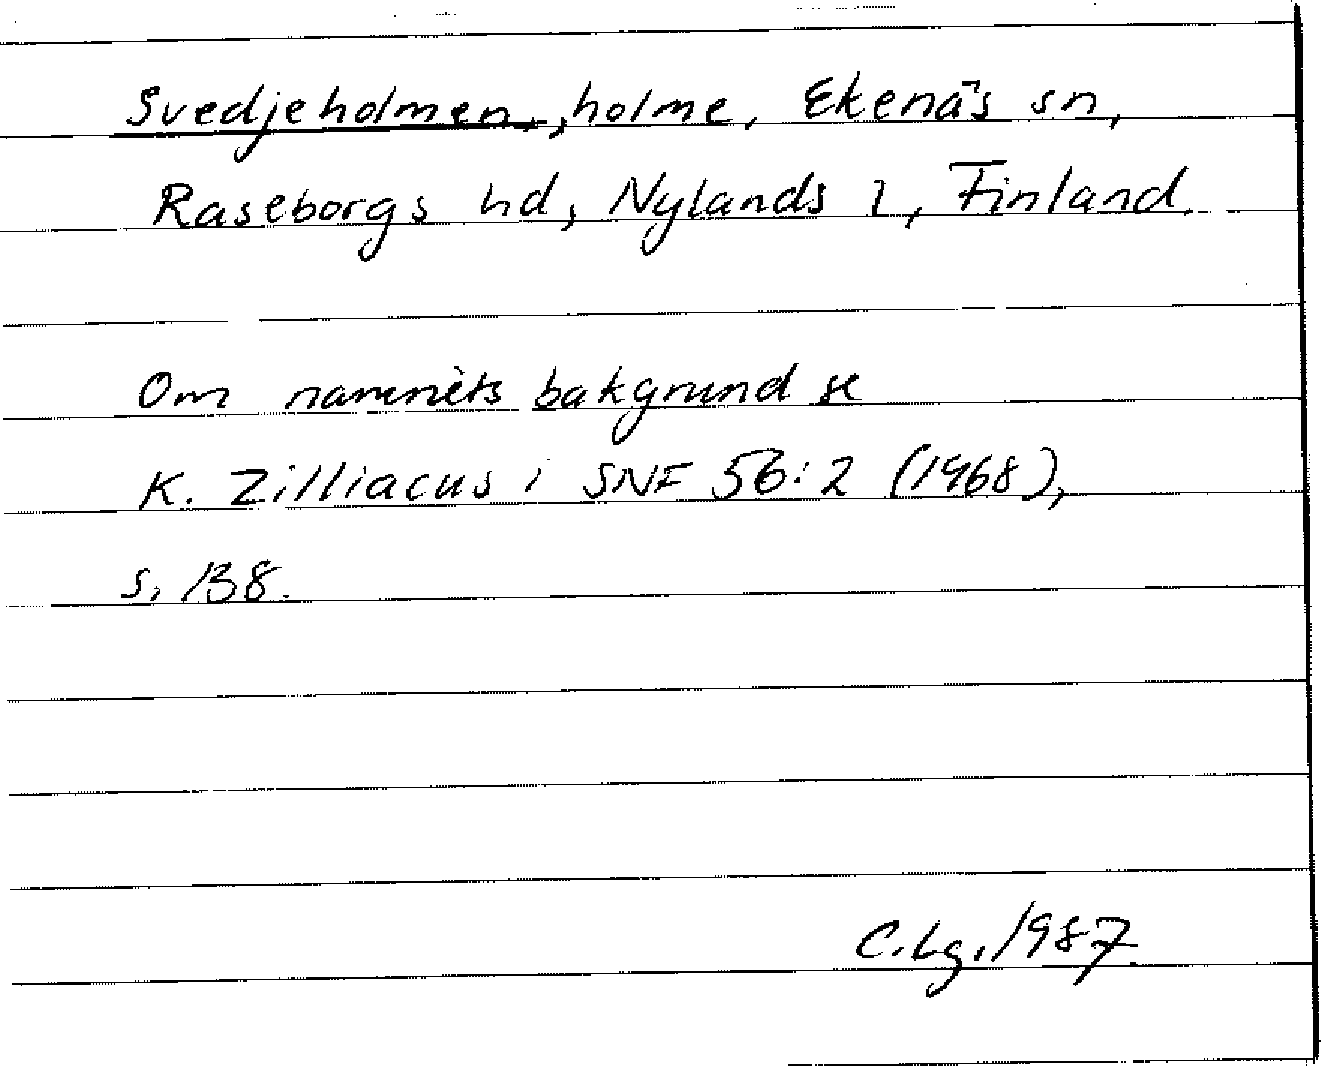 Svedjeholmen, holme, Ekenäs sn,
Raseborgs hd, Nylands l, Finland.
Om namnets bakgrund se
K. Zilliacus i SNF 56:2 (1968),
s. 138.
C. Lg. 1987.